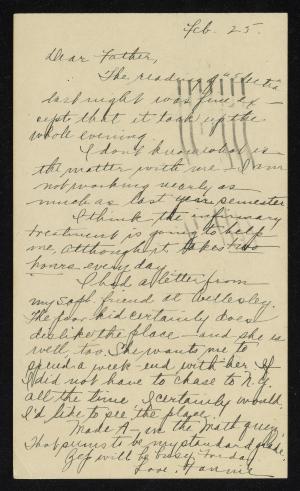 Feb. 25.
Dear Father,
The reading of "Electra"
last night was fine ex-
cept that it took up the
whole evening.
I don't know what is
the matter with me - I am
not working nearly as
much as last year semester
I think the infirmary
treatment is going to help
me, although it takes two
hours every day.
I had a letter from
my soph friend at Wellesley.
The poor kid certainly does
dislike the place - and she is
well too. She wants me to
spend a week-end with her. If
I did not have to chase to N.Y.
all the time I certainly would.
I'd like to see the place.
Made A- in the Math quiz.
That seems to be my standard grade.
will be busy Tuesday
Love, Hannie